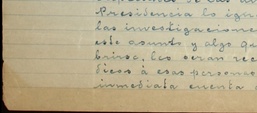 Presidencia lo igu
las investigacione
este asunto y algo qu
brirse. Les seran rec
dicos á esas personas
inmediata cuenta